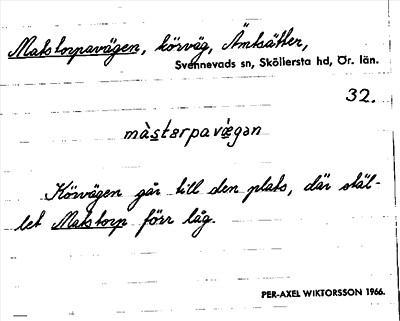 Matstorpavägen, körväg, Ämtsätter,
Svennevads sn, Sköllersta hd, Ör. län.
32.
màsterpaviægən
Körvägen går till den plats, där stäl-
let Matstorp förr låg.
PER-AXEL WIKTORSSON 1966.